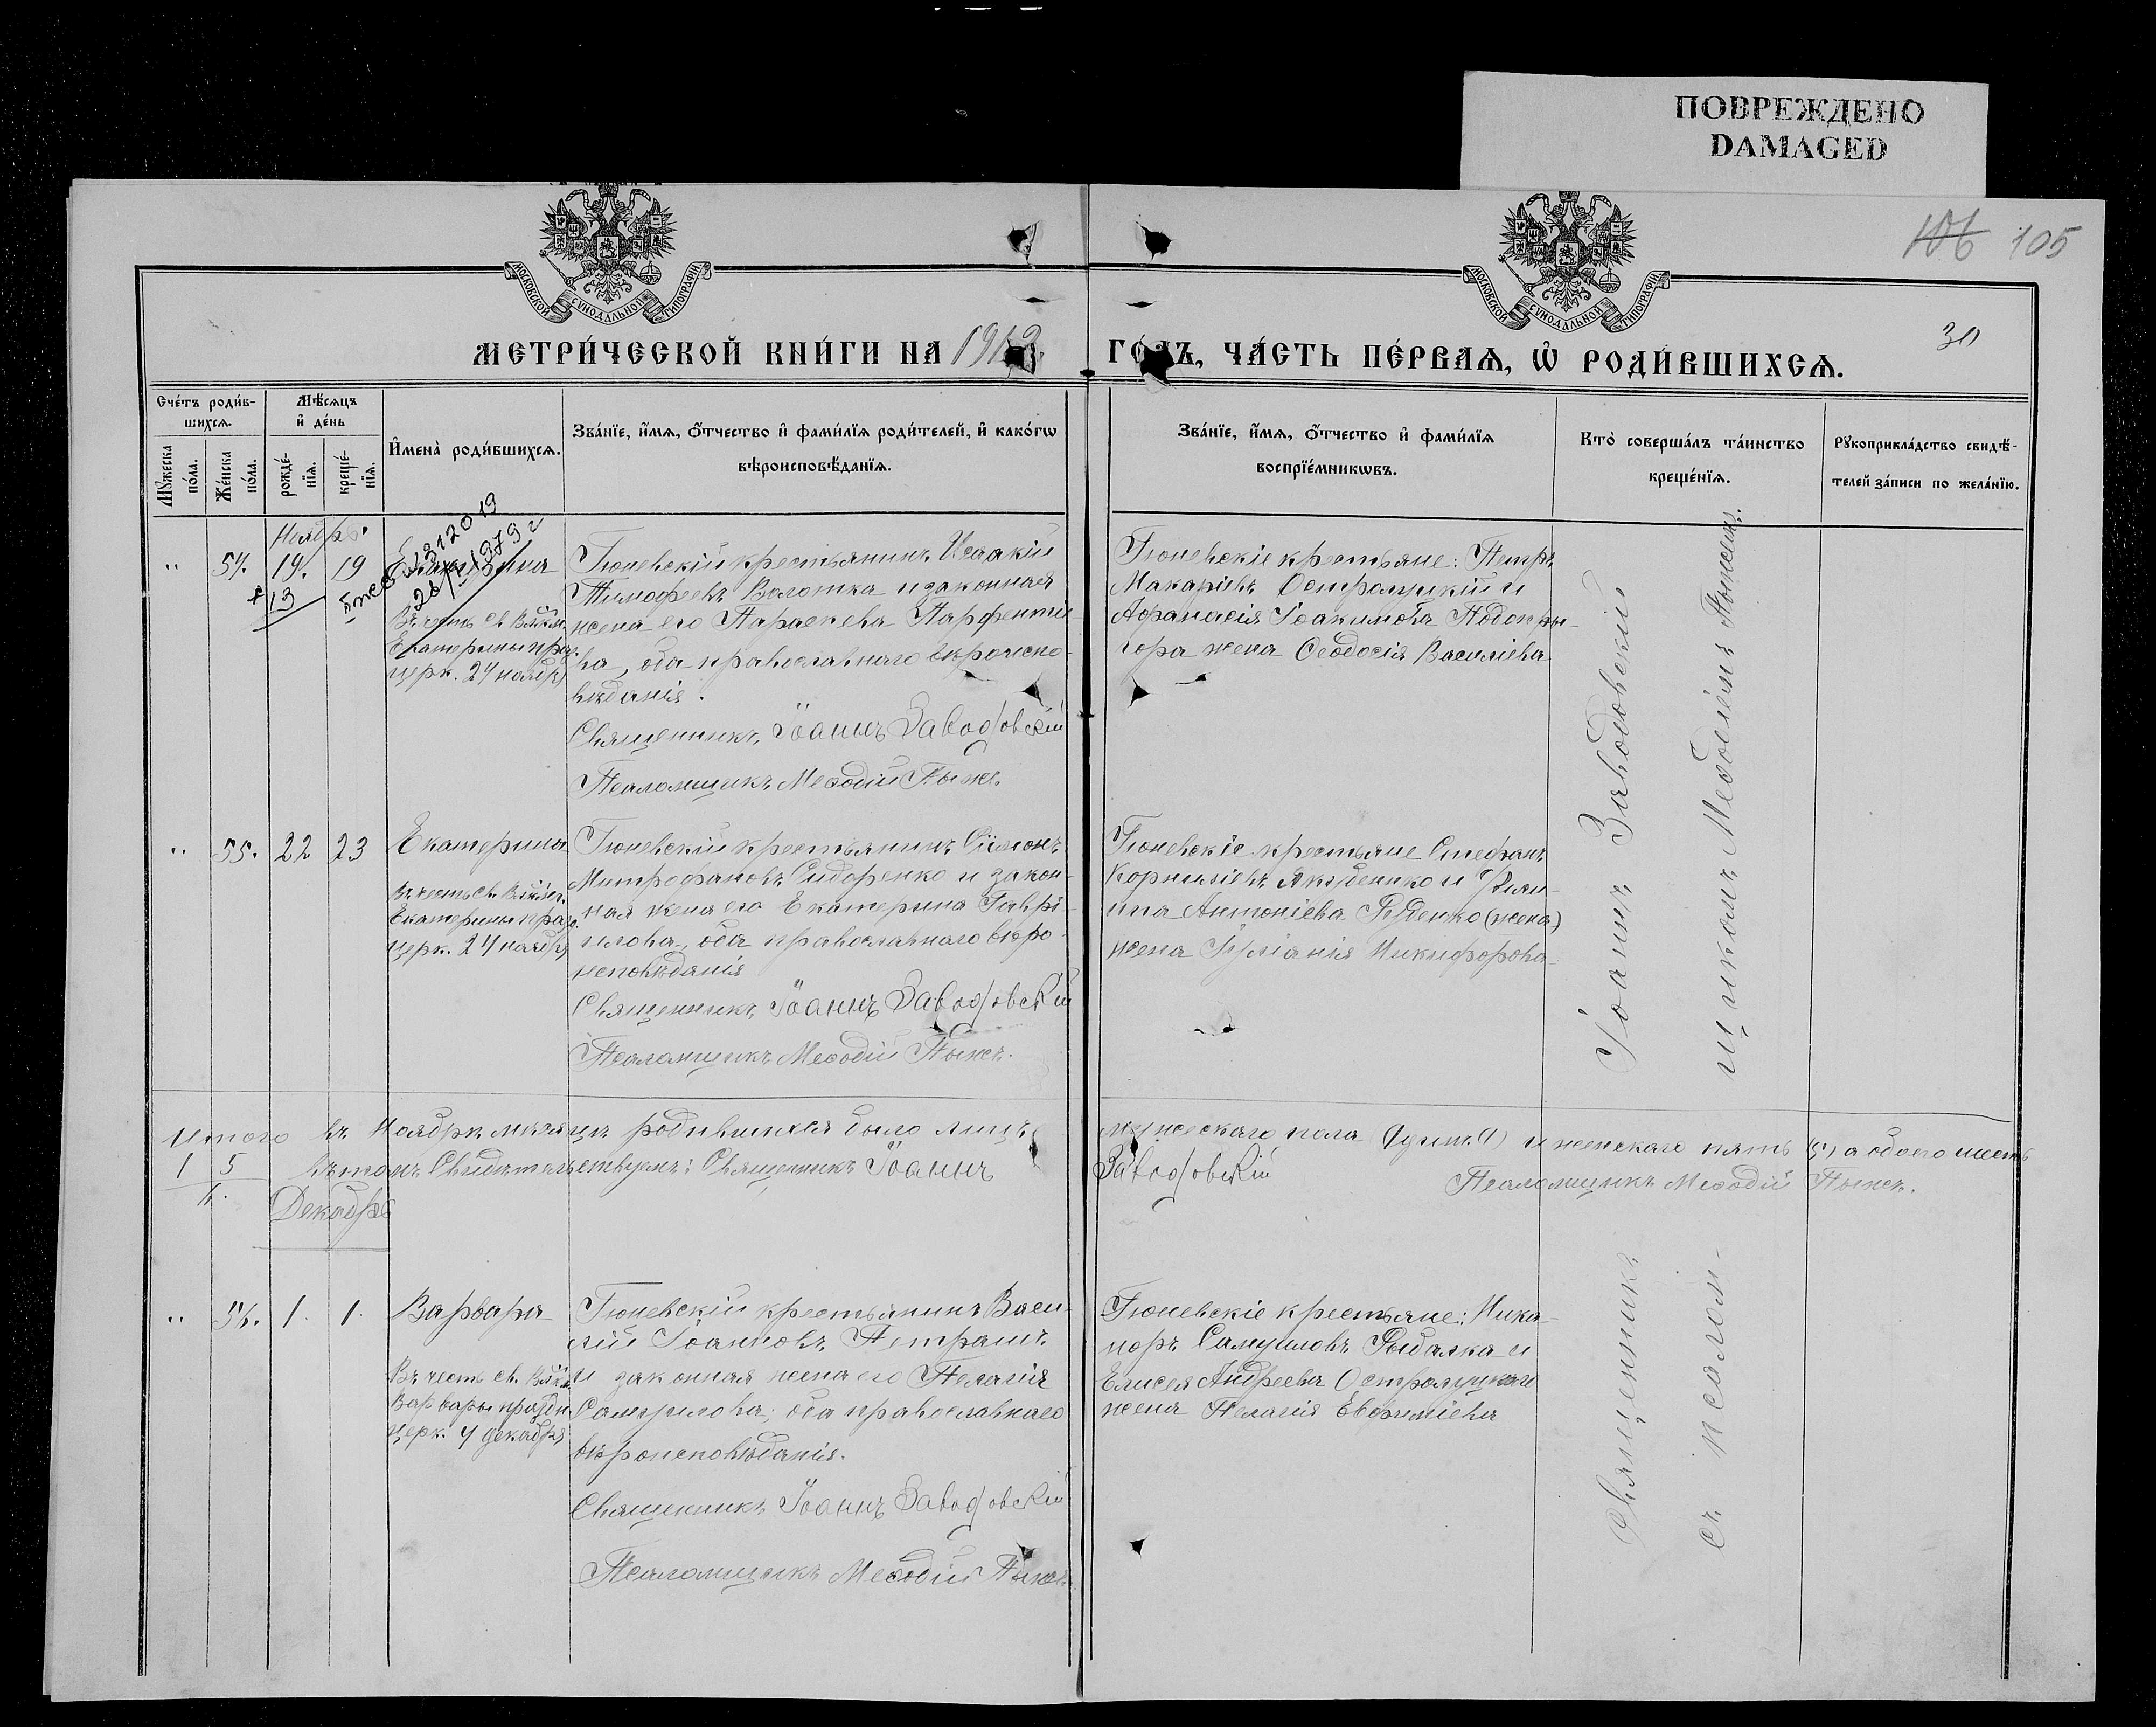 ПОВРЕЖДЕНО
DAMAGED
106 105
30
МОСКОВСКОЙ СѴНОДАЛЬНОЙ ТИПОГРАФІИ
МОСКОВСКОЙ СѴНОДАЛЬНОЙ ТИПОГРАФІИ
МЕТРИ́ЧЕСКОЙ КНИ́ГИ НА 1913
ГО́ДЪ, ЧА́СТЬ ПЕ́РВАѦ, Ѡ҆ РОДИ́ВШИХСѦ.
Сче́тъ роди́в-
шихсѧ.
Мꙋжеска по́ла.
Же́нска по́ла.
Мѣ́сѧцъ
и҆ де́нь
рожде́-
нїѧ.
креще́-
нїѧ.
И҆мена̀ роди́вшихсѧ.
Зва́нїе, и҆́мѧ, ѻ҆́тчество и҆ фами́лїѧ роди́телей, и҆ како́гѡ
вѣроисповѣ́данїѧ.
Зва́нїе, и҆́мѧ, ѻ҆́тчество и҆ фами́лїѧ
воспрїе́мникѡвъ.
Кто̀ соверша́лъ та́инство
креще́нїѧ.
Рꙋкоприкла́дство свидѣ́-
телей за́писи по жела́нїю.
Ноябрь.
" 54. 19. 19
13
28/V 1979 г
Въ честь св. Влкм.
Екатерины праз.
церк. 24 ноября
Гюневскій крестьянинъ Исаакій
Тимофеевъ Волотка и законная
жена его Параскева Парфентіе
ва, оба православнаго вѣроиспо-
вѣданія.
Священникъ Іоаннъ Заводовскій
Псаломщикъ Меѳодій Пыжъ.
Гюневскіе крестьяне: Петръ
Макаріевъ Остролуцкій и
Афанасія Іоакимова
жена Ѳеодосія Василіева
" 55. 22 23 Екатерина
Въ честь св. Влкм.
Екатерины праз.
церк. 24 ноября
Гюневскій крестьянинъ Симонъ
Митрофановъ Сидоренко и закон-
ная жена его Екатерина Гаврі-
илова, оба православнаго вѣро-
исповѣданія
Священникъ Іоаннъ Заводовскій
Псаломщикъ Меѳодій Пыжъ.
Гюневскіе крестьяне Стефанъ
Корниліевъ Якубенко и
Антоніева Руденко (жена)
жена Іуліанія Никифорова
Итого въ Ноябрѣ мѣсяцѣ родившихся было лицъ мужескаго пола одинъ (1) и женскаго пять (5), а обоего шесть
1 5
6.
Въ томъ свидѣтельствуемъ: Священникъ Іоаннъ Заводовскій Псаломщикъ Меѳодій Пыжъ.
Декабрь
" 56. 1. 1. Варвара
Въ честь св. Влкм.
Варвары праздн.
церк. 4 декабря
Гюневскій крестьянинъ Васи-
лій Іоанновъ Петрашъ
и законная жена его Пелагія
Самуилова, оба православнаго
вѣроисповѣданія.
Священникъ Іоаннъ Заводовскій
Псаломщикъ Меѳодій Пыжъ.
Гюневскіе крестьяне: Ника-
норъ Самуиловъ Рыбалка и
Елисея Андреева Остролуцкаго
жена Пелагія Евфиміева
Священникъ Іоаннъ Заводовскій
съ псалом-
щикомъ Меѳодіемъ Пыжемъ.